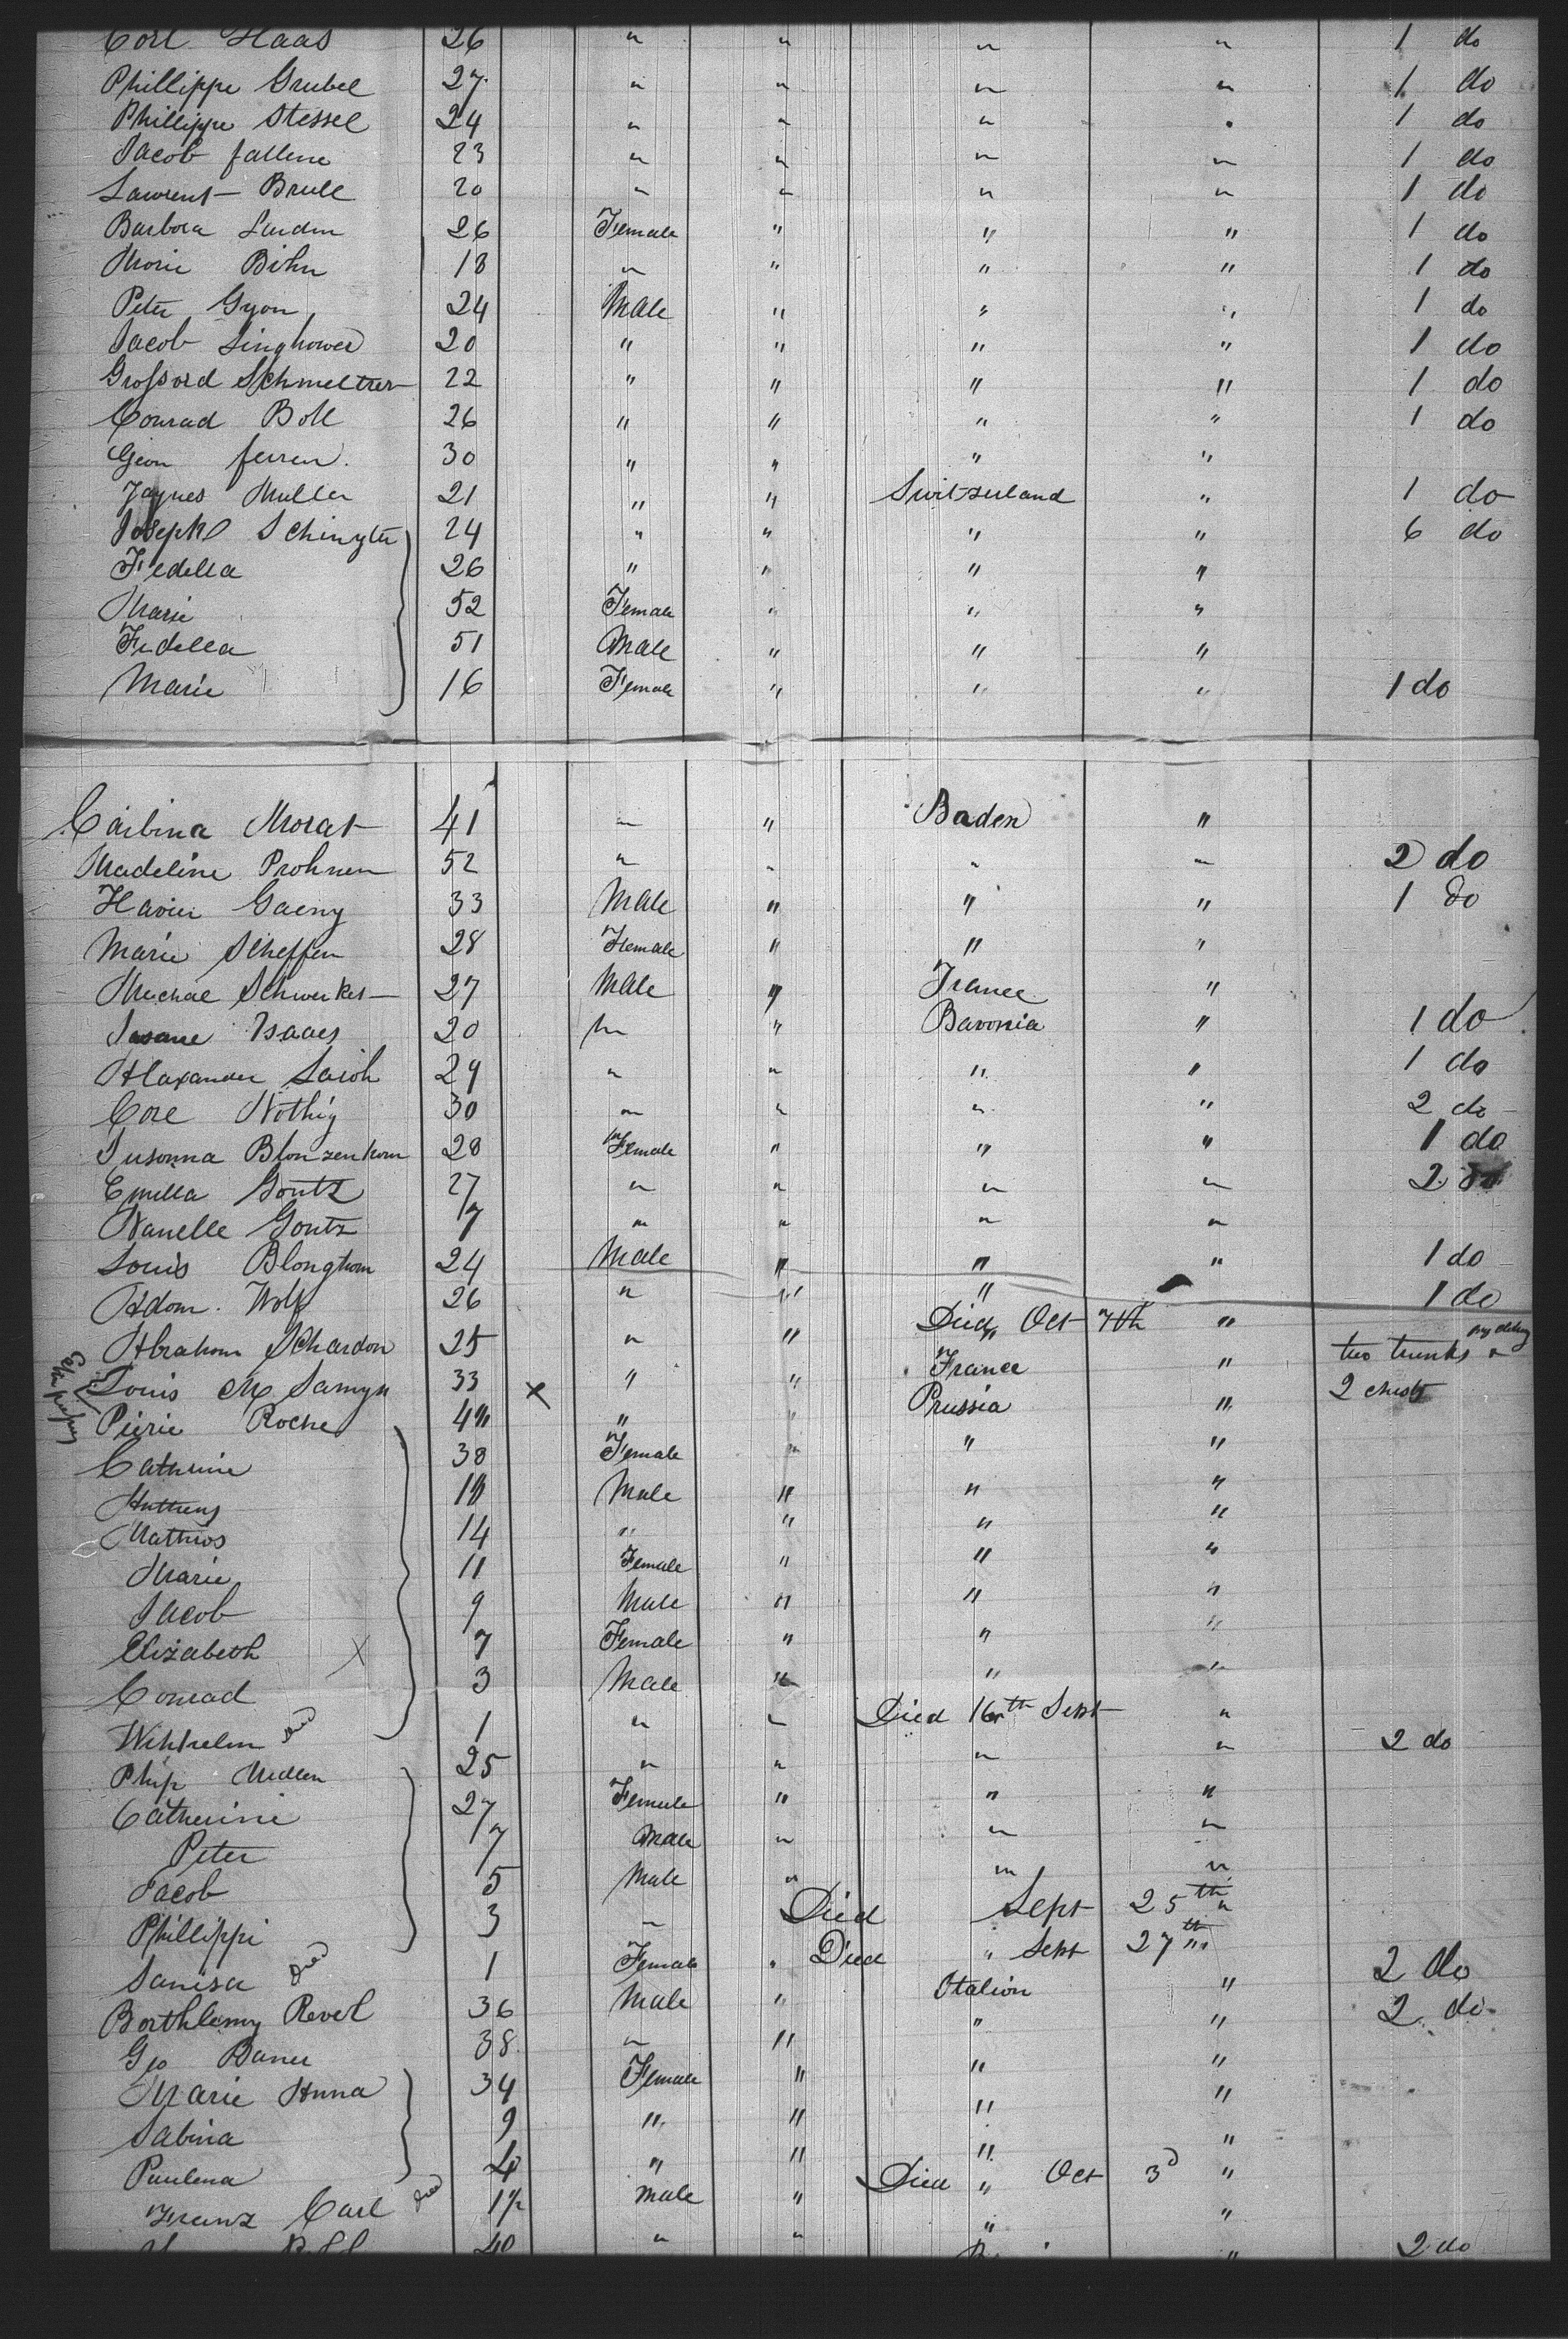 Carl Haas 26 " " " " 1 do
Phillippe Grubel 27 " " " " 1 do
Phillippe Stessel 24 " " " " 1 do
Jacob fallene 23 " " " " 1 do
Laurent Brull 20 " " " " 1 do
Barbora 26 Female " " " 1 do
Marie Bihn 18 " " " " 1 do
Peter Gyon 24 Male " " " 1 do
Jacob Linghower 20 " " " " 1 do
Schmeltzer 22 " " " " 1 do
Conrad Boll 26 " " " " 1 do
Geon ferren. 30 " " " "
Jaques Muller 21 " " Switzerland " 1 do
Joseph Schinyter 24 " " " " 6 do
Fidella 26 " " " "
Marie 52 Female " " "
Fidella 51 Male " " "
Marie 16 Female " " " 1 do
Morat 41 " " Baden "
Madeline Prohnen 52 " " " " 2 do
Xavier Gaeny 33 Male " " " 1 do
Marie Scheffen 28 Female " " "
Michae 27 Male " France "
Isaacs 20 " " Bavoria " 1 do
Alaxander 29 " " " " 1 do
Nothig 30 " " " " 2 do
Susonna Blonzenhorn 28 Female " " " 1 do
Emilla Gontz 27 " " " " 2 do
Nanelle Gontz 7 " " " "
Louis Blonghorn 24 Male " " " 1 do
Adom Wolf 26 " " " 1 do
Abrahom Schardon 25 " " Died " Oct 7th "
Louis M Samyn 33 x " " France " two trunks &
2 chests
Pierie Roche " " Prussia "
Catherine 38 Female " " "
Male " " "
Mathios 14 " " " "
Marie 11 Female " " "
Jacob 9 Male " " "
Elizabeth X 7 Female " " "
Conrad 3 Male " " "
Wilhelm died 1 " " Died 16th Sept "
Phip 25 " " " " 2 do
Catherine 27 Female " " "
Peter 7 Male " " "
Jacob 5 Male " " "
Phillippi 3 " Died Sept 25th "
died 1 Female " Died " Sept 27th "
Borthlemy Revel 36 Male " Otalion " 2 do
Geo Baner 38 " " " " 2 do
Marie Anna 34 Female " " "
Sabina 9 " " " "
Paulena " " " "
Franz Carl died 1½ Male " Died " Oct 3d "
40 " " " " 2 do